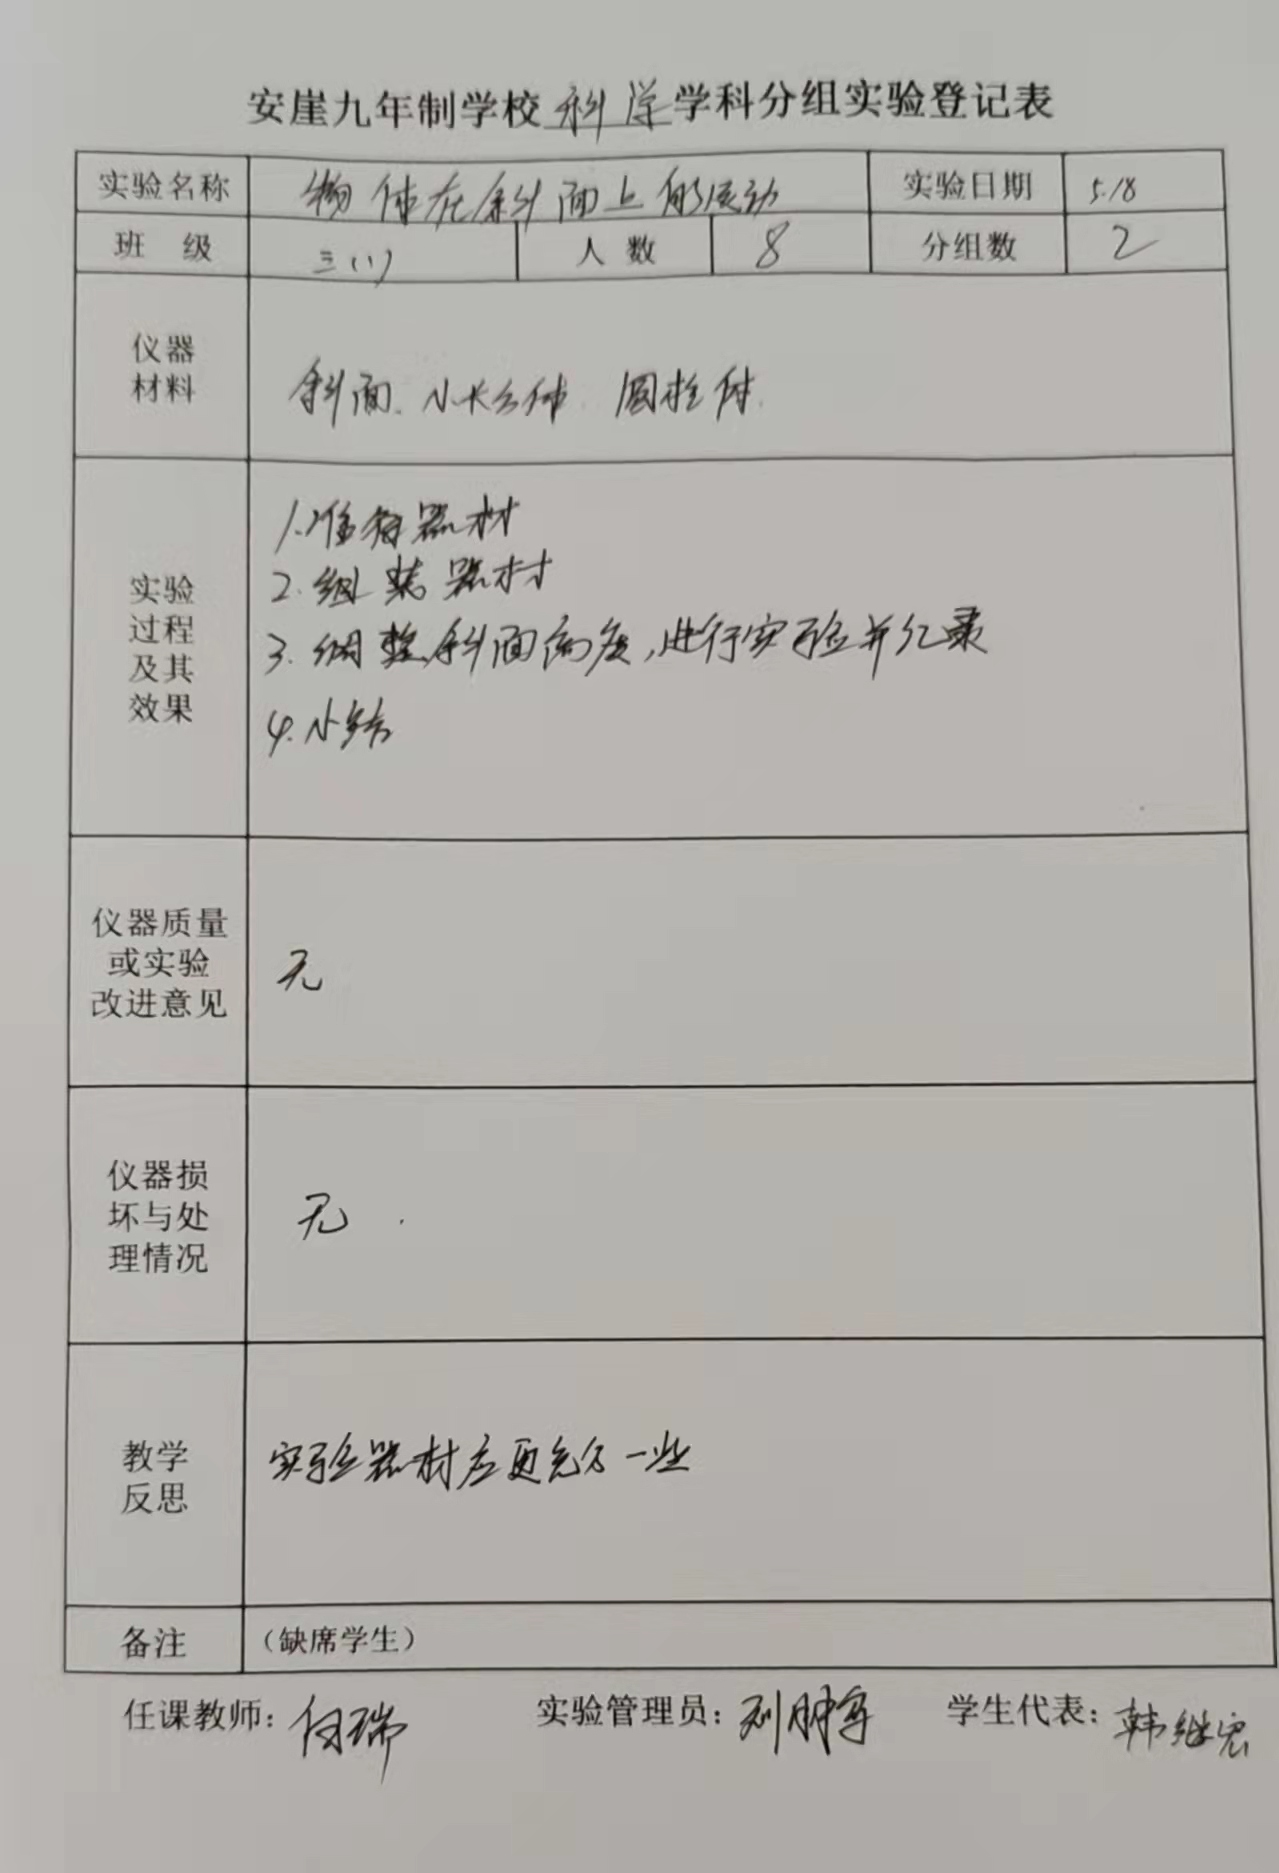 安崖九年制学校科学学科分组实验登记表
实验名称 物体在斜面上的运动 实验日期 5.18
班级 三(1) 人数 8 分组数 2
仪器
材料
斜面、小长方体 圆柱体
实验
过程
及其
效果
1.准备器材
2.组装器材
3.调整斜面高度,进行实验并记录
4.小结
仪器质量
或实验
改进意见
无
仪器损
坏与处
理情况
无
教学
反思
实验器材应更充分一些
备注 (缺席学生)
任课教师: 瑞 实验管理员: 刘 学生代表: 韩继宏